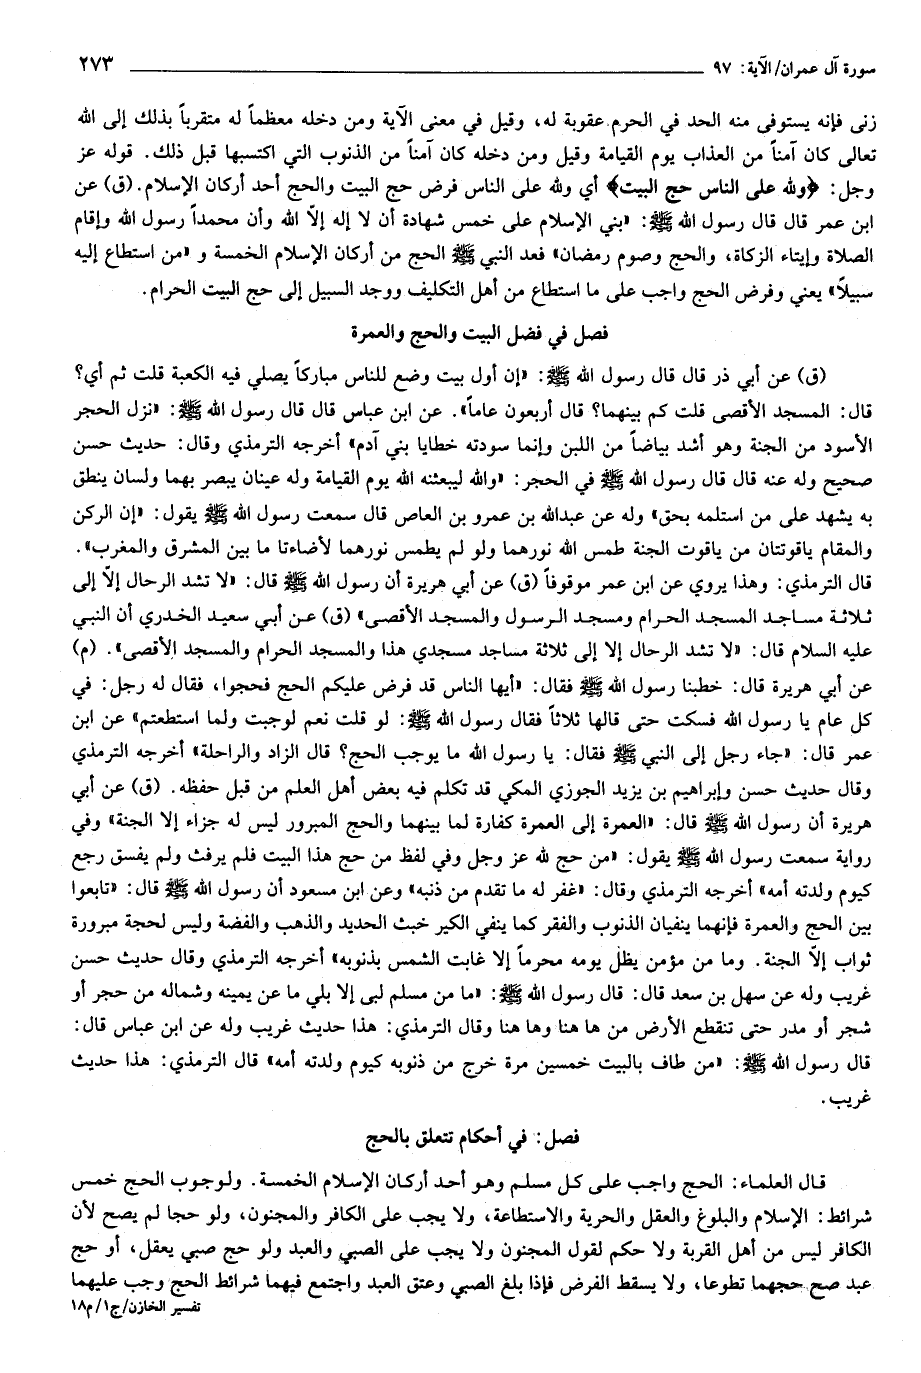 سورة آل عمران/ الآية: ٩٧ ٢٧٣
زنى فإنه يستوفى منه الحد في الحرم عقوبة له، وقيل في معنى الآية ومن دخله معظماً له متقرباً بذلك إلى الله
تعالى كان آمناً من العذاب يوم القيامة وقيل ومن دخله كان آمناً من الذنوب التي اكتسبها قبل ذلك. قوله عز
وجل: ﴿ولله على الناس حج البيت﴾ أي ولله على الناس فرض حج البيت والحج أحد أركان الإسلام. (ق) عن
ابن عمر قال قال رسول الله ﷺ: «بني الإسلام على خمس شهادة أن لا إله إلّا الله وأن محمداً رسول الله وإقام
الصلاة وإيتاء الزكاة، والحج وصوم رمضان» فعد النبي ﷺ الحج من أركان الإسلام الخمسة و «من استطاع إليه
سبيلاً» يعني وفرض الحج واجب على ما استطاع من أهل التكليف ووجد السبيل إلى حج البيت الحرام.
فصل في فضل البيت والحج والعمرة
(ق) عن أبي ذر قال قال رسول الله ﷺ: «إن أول بيت وضع للناس مباركاً يصلي فيه الكعبة قلت ثم أي؟
قال: المسجد الأقصى قلت كم بينهما؟ قال أربعون عاماً». عن ابن عباس قال قال رسول الله ﷺ: «نزل الحجر
الأسود من الجنة وهو أشد بياضاً من اللبن وإنما سودته خطايا بني آدم» أخرجه الترمذي وقال: حديث حسن
صحيح وله عنه قال قال رسول الله ﷺ في الحجر: «والله ليبعثنه الله يوم القيامة وله عينان يبصر بهما ولسان ينطق
به يشهد على من استلمه بحق» وله عن عبدالله بن عمرو بن العاص قال سمعت رسول الله ﷺ يقول: «إن الركن
والمقام ياقوتتان من ياقوت الجنة طمس الله نورهما ولو لم يطمس نورهما لأضاءتا ما بين المشرق والمغرب».
قال الترمذي: وهذا يروي عن ابن عمر موقوفاً (ق) عن أبي هريرة أن رسول الله ﷺ قال: «لا تشد الرحال إلّا إلى
ثلاثة مساجد المسجد الحرام ومسجد الرسول والمسجد الأقصى» (ق) عن أبي سعيد الخدري أن النبي
عليه السلام قال: «لا تشد الرحال إلا إلى ثلاثة مساجد مسجدي هذا والمسجد الحرام والمسجد الأقصى». (م)
عن أبي هريرة قال: خطبنا رسول الله ﷺ فقال: «أيها الناس قد فرض عليكم الحج فحجوا، فقال له رجل: في
كل عام يا رسول الله فسكت حتى قالها ثلاثاً فقال رسول الله ﷺ: لو قلت نعم لوجبت ولما استطعتم» عن ابن
عمر قال: «جاء رجل إلى النبي ﷺ فقال: يا رسول الله ما يوجب الحج؟ قال الزاد والراحلة» أخرجه الترمذي
وقال حديث حسن وإبراهيم بن يزيد الجوزي المكي قد تكلم فيه بعض أهل العلم من قبل حفظه. (ق) عن أبي
هريرة أن رسول الله ﷺ قال: «العمرة إلى العمرة كفارة لما بينهما والحج المبرور ليس له جزاء إلا الجنة» وفي
رواية سمعت رسول الله ﷺ يقول: «من حج لله عز وجل وفي لفظ من حج هذا البيت فلم يرفث ولم يفسق رجع
كيوم ولدته أمه» أخرجه الترمذي وقال: «غفر له ما تقدم من ذنبه» وعن ابن مسعود أن رسول الله ﷺ قال: «تابعوا
بين الحج والعمرة فإنهما ينفيان الذنوب والفقر كما ينفي الكير خبث الحديد والذهب والفضة وليس لحجة مبرورة
ثواب إلّا الجنة. وما من مؤمن يظل يومه محرماً إلا غابت الشمس بذنوبه» أخرجه الترمذي وقال حديث حسن
غريب وله عن سهل بن سعد قال: قال رسول الله ﷺ: «ما من مسلم لبى إلا بلي ما عن يمينه وشماله من حجر أو
شجر أو مدر حتى تنقطع الأرض من ها هنا وها هنا وقال الترمذي: هذا حديث غريب وله عن ابن عباس قال:
قال رسول الله ﷺ: «من طاف بالبيت خمسين مرة خرج من ذنوبه كيوم ولدته أمه» قال الترمذي: هذا حديث
غريب.
فصل: في أحكام تتعلق بالحج
قال العلماء: الحج واجب على كل مسلم وهو أحد أركان الإسلام الخمسة. ولوجوب الحج خمس
شرائط: الإسلام والبلوغ والعقل والحرية والاستطاعة، ولا يجب على الكافر والمجنون، ولو حجا لم يصح لأن
الكافر ليس من أهل القربة ولا حكم لقول المجنون ولا يجب على الصبي والعبد ولو حج صبي يعقل، أو حج
عبد صح حجهما تطوعا، ولا يسقط الفرض فإذا بلغ الصبي وعتق العبد واجتمع فيهما شرائط الحج وجب عليهما
تفسير الخازن/ج١/م١٨